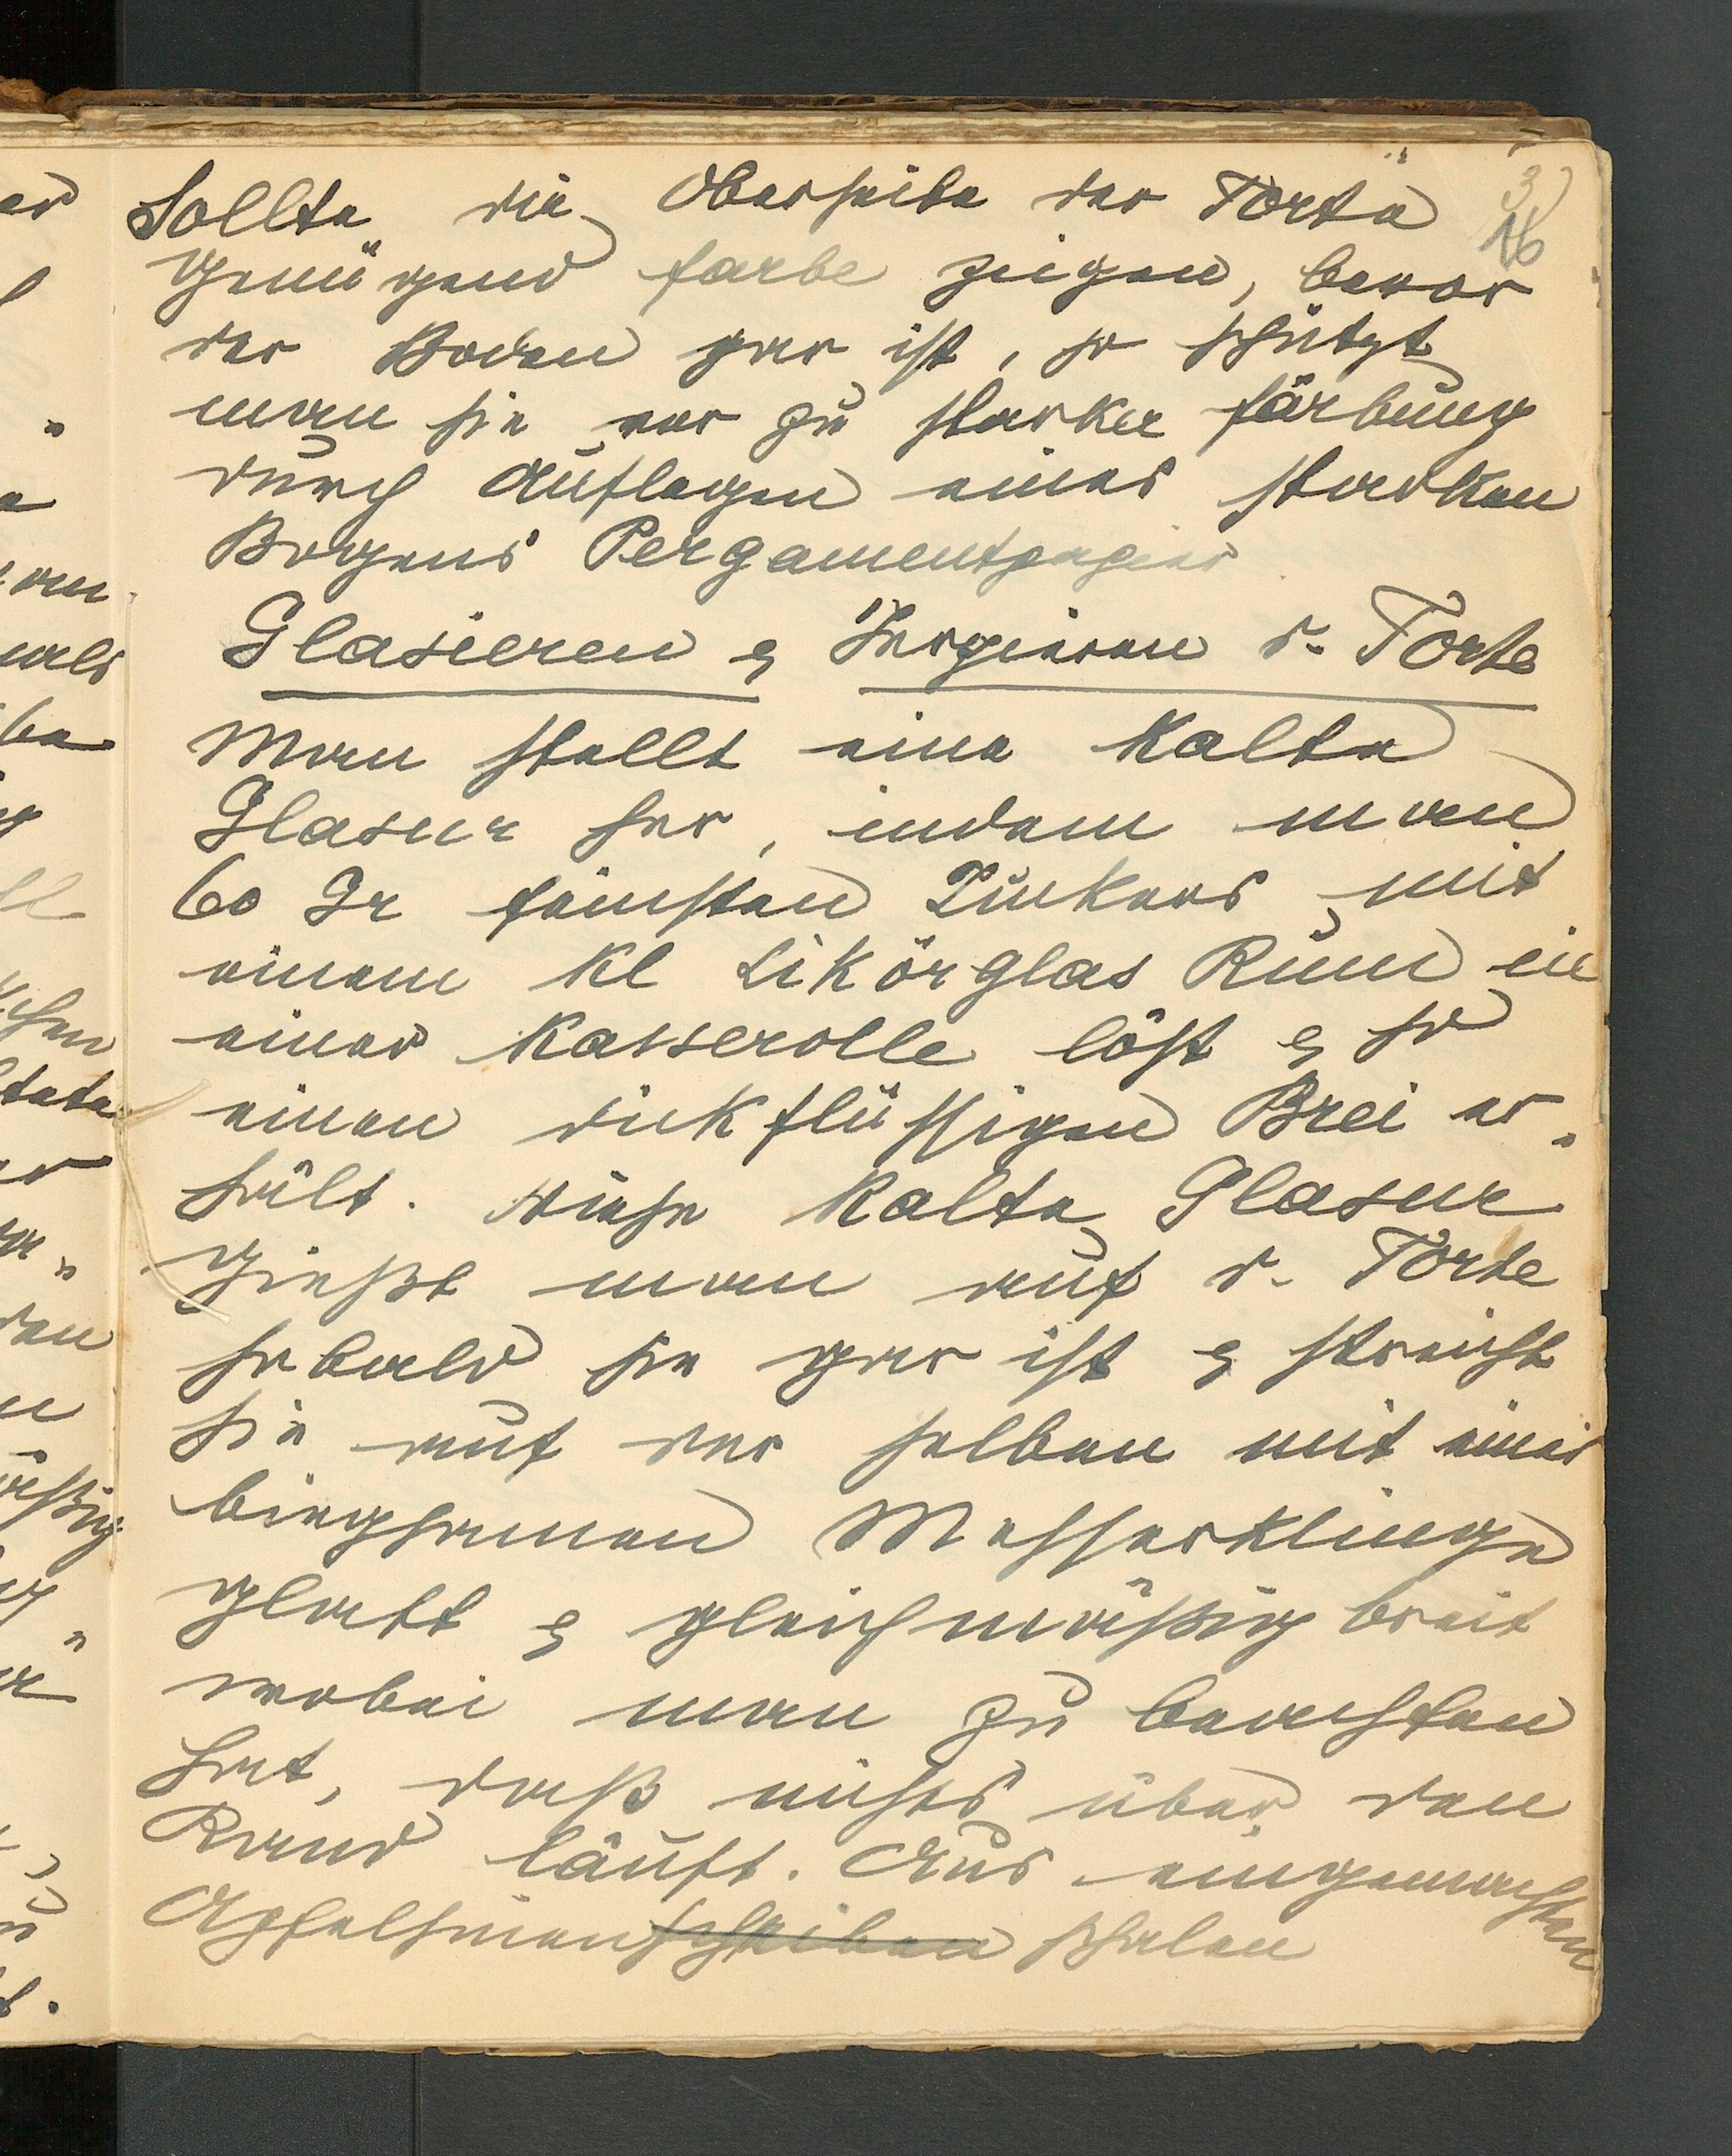 Sollte die Oberseite der Torte
genügend Farbe zeigen, bevor
der Boden gar ist, so schützt
man sie vor zu starker Färbung
durch Auflegen eines starken
Bogens Pergamentpapier
Glasieren & Verzieren d. Torte
Man stellt eine kalte
Glasur her, indem man
60 Gr feinsten Zuckers mit
einem kl Likörglas Rum in
einer Kasserolle löst & so
einen dickflüssigen Brei er„
hält. Diese kalte Glasur
gießt man auf d. Torte
sobald sie gar ist & streicht
sie auf der selben mit einer
biegsamen Messerklinge
glatt & gleichmäßig breit
wobei man zu beachten
hat, daß nichts über den
Rand läuft. Aus eingemachten
Apfelsinenscheiben schalen
16